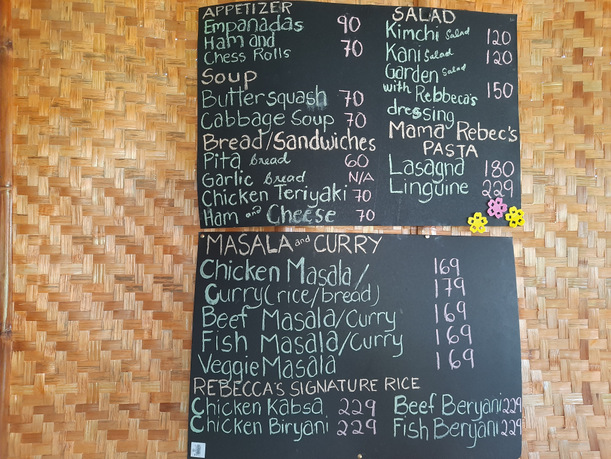 APPETIZER
Empanadas 90
Ham and
Chess Rolls 70
Soup
Buttersquash 70
Cabbage Soup 70
Bread/Sandwiches
Pita bread 60
Garlic bread N/A
Chicken Teriyaki 70
Ham and Cheese 70
SALAD
Kimchi Salad 120
Kani Salad 120
Garden Salad
with Rebbeca's 150
dressing
Mama Rebec's
PASTA
Lasagna 180
Linguine 229
MASALA and CURRY
Chicken Masala/ 169
Curry (rice/bread) 179
Beef Masala/Curry 169
Fish Masala/Curry 169
Veggie Masala 169
REBECCA'S SIGNATURE RICE
Chicken Kabsa 229 Beef Beryani 229
Chicken Biryani 229 Fish Beryani 229